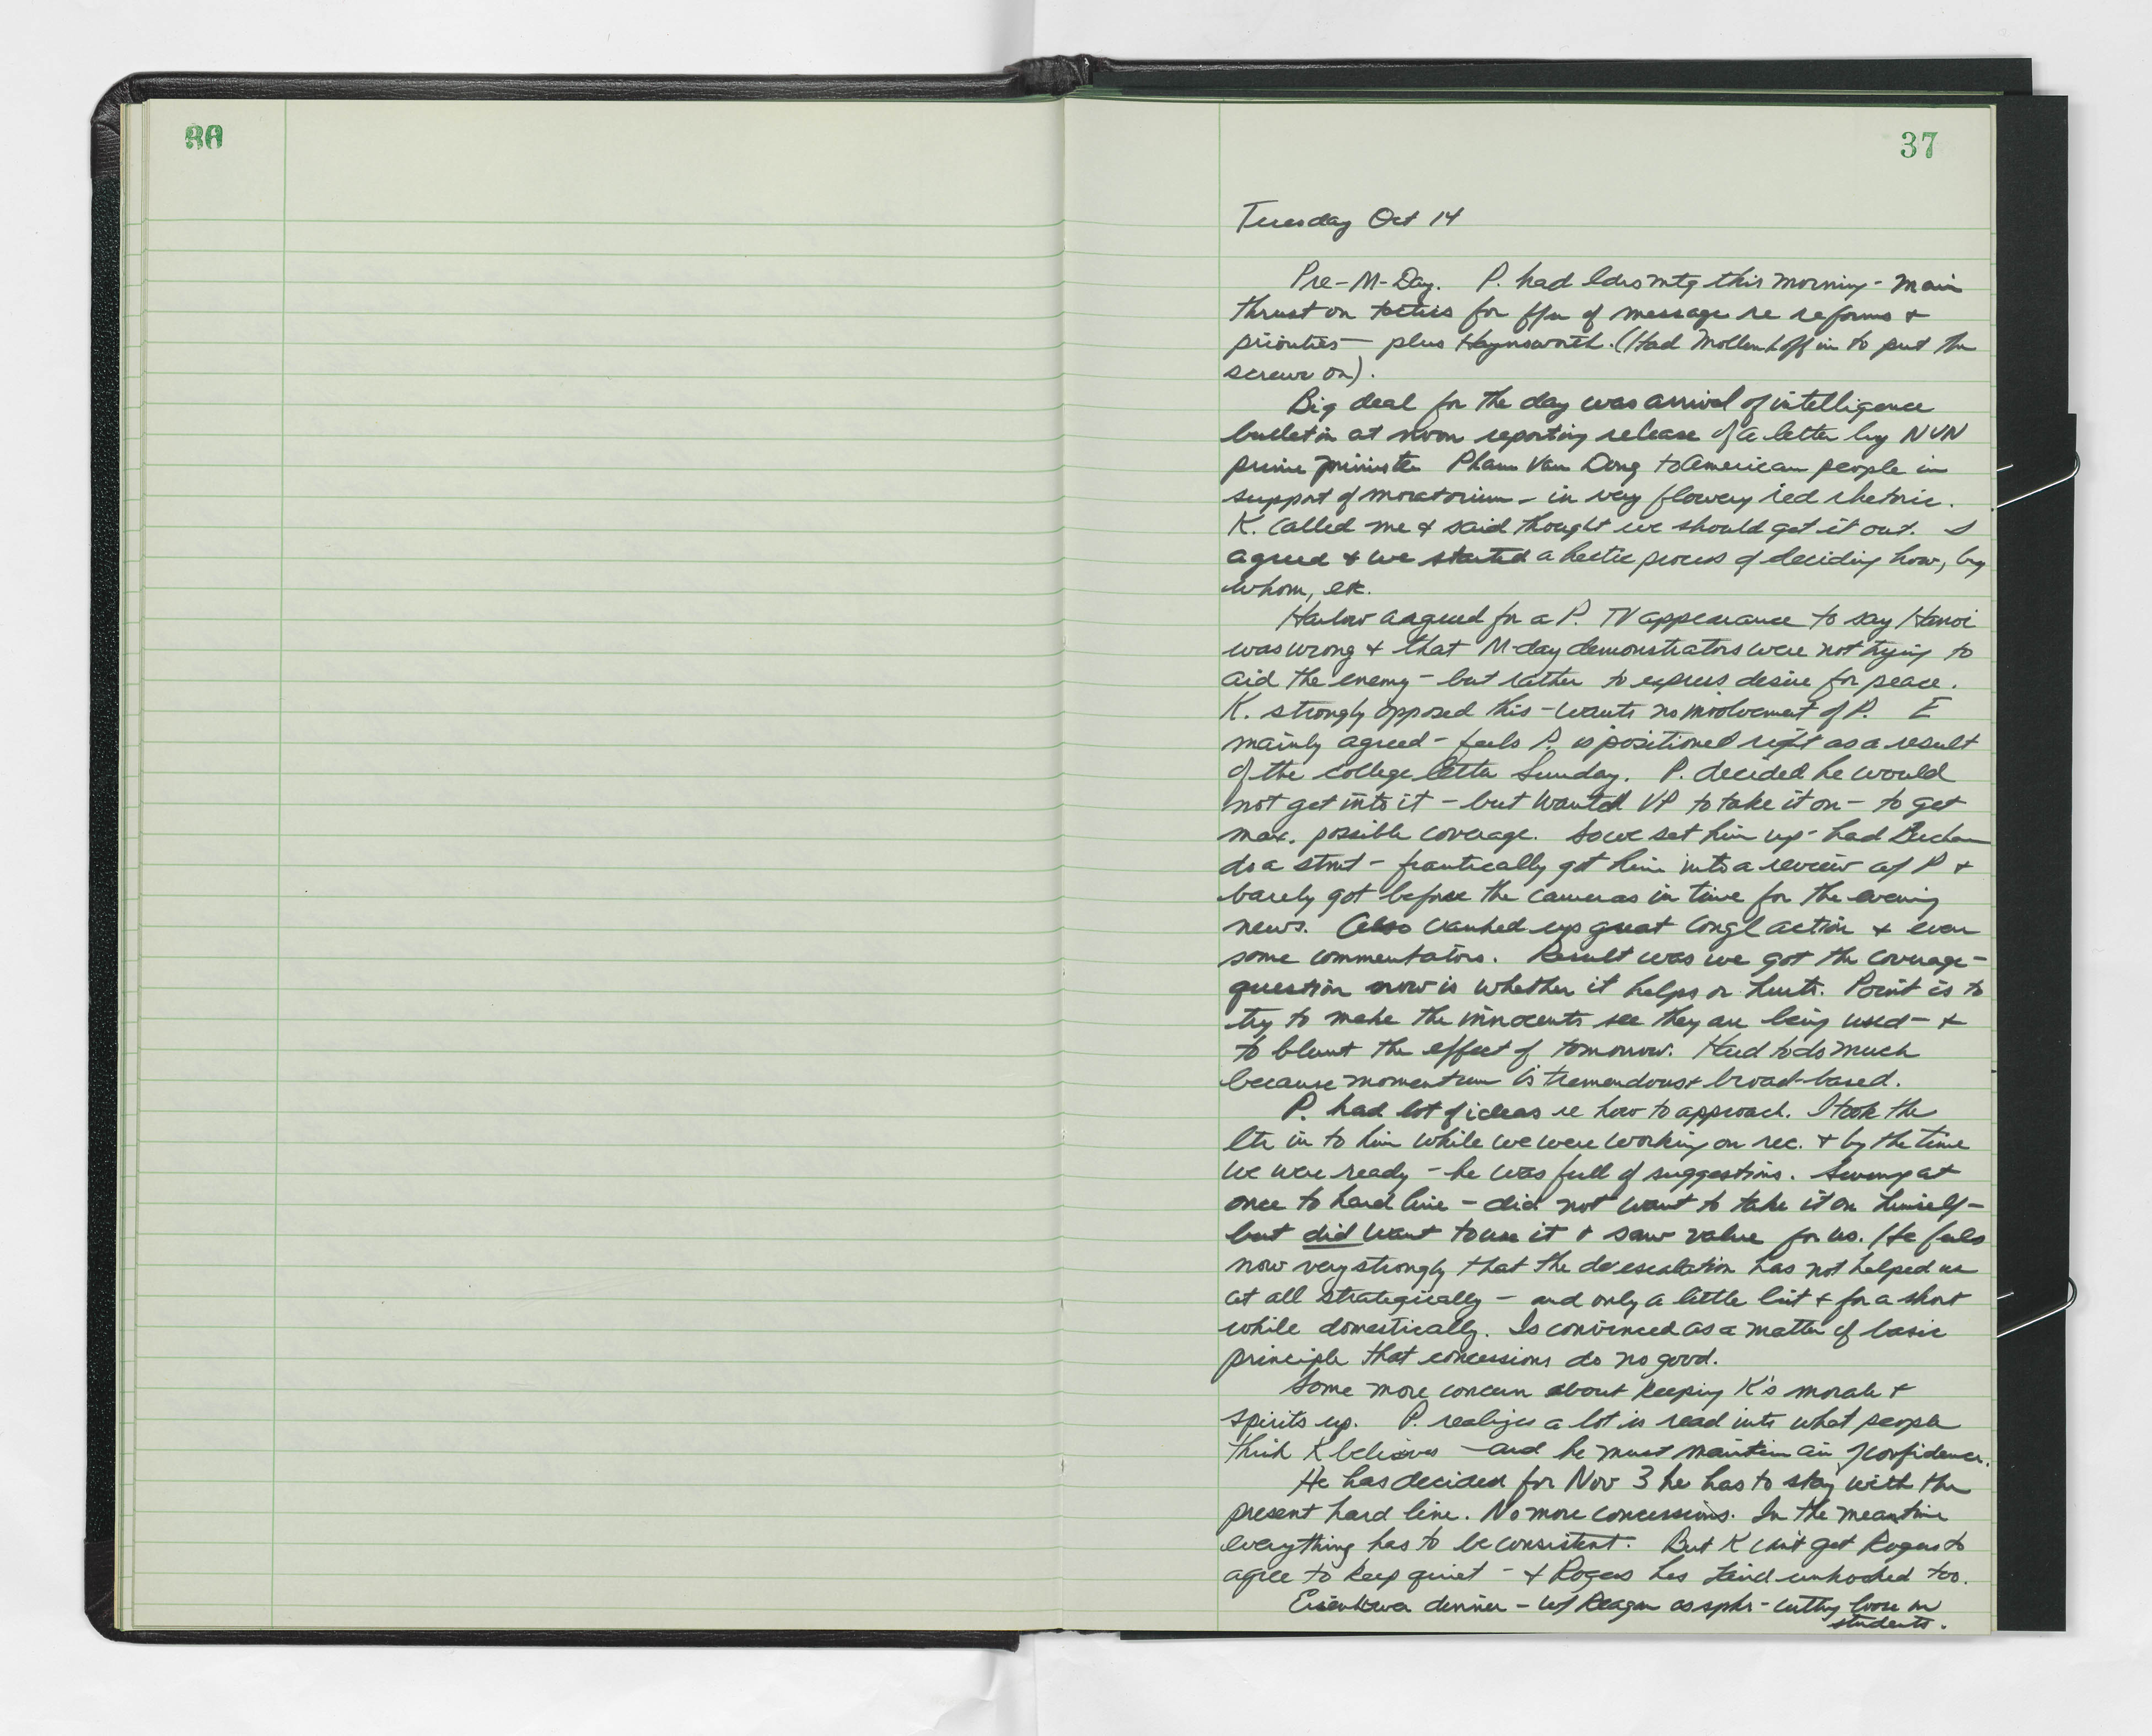 37
Tuesday Oct 14
Pre-M-Day. P. had ldrs mtg this morning - main
thrust on tactics for f/u of message re reforms &
priorities - plus Haynsworth. (Had Mollenhoff in to put the
screws on).
Big deal for the day was arrival of intelligence
bulletin at noon reporting release of a letter by NVN
prime minister Pham Van Dong to American people in
support of moratorium - in very flowery red rhetoric.
K. called me & said thought we should get it out. I
agreed & we started a hectic process of deciding how, by
whom, etc.
Harlow argued for a P. TV appearance to say Hanoi
was wrong & that M-day demonstrators were not trying to
aid the enemy - but rather to express desire for peace.
K. strongly opposed this - wants no involvement of P. E
mainly agreed - feels P. is positioned right as a result
of the college letter Sunday. P. decided he would
not get into it - but wanted VP to take it on - to get
max. possible coverage. So we set him up - had Buchan
do a stmt - frantically got him into a review w/ P &
barely got before the cameras in time for the evening
news. Also cranked up great congl action & even
some commentators. Result was we got the coverage -
question now is whether it helps or hurts. Point is to
try to make the innocents see they are being used - &
to blunt the effect of tomorrow. Hard to do much
because momentum is tremendous & broad-based.
P. had lot of ideas re how to approach. I took the
ltr in to him while we were working on rec. & by the time
we were ready - he was full of suggestions. Swung at
once to hard line - did not want to take it on himself -
but did want to use it & saw value for us. He feels
now very strongly that the de escalation has not helped us
at all strategically - and only a little bit & for a short
while domestically. Is convinced as a matter of basic
principle that concessions do no good.
Some more concern about keeping K's morale &
spirits up. P. realizes a lot is read into what people
think K believes - and he must maintain air of confidence.
He has decided for Nov 3 he has to stay with the
present hard line. No more concessions. In the meantime
everything has to be consistent. But K can't get Rogers to
agree to keep quiet - & Rogers has Laird unhooked too.
Eisenhower dinner - w/ Reagan as spkr - cutting loose on
students.